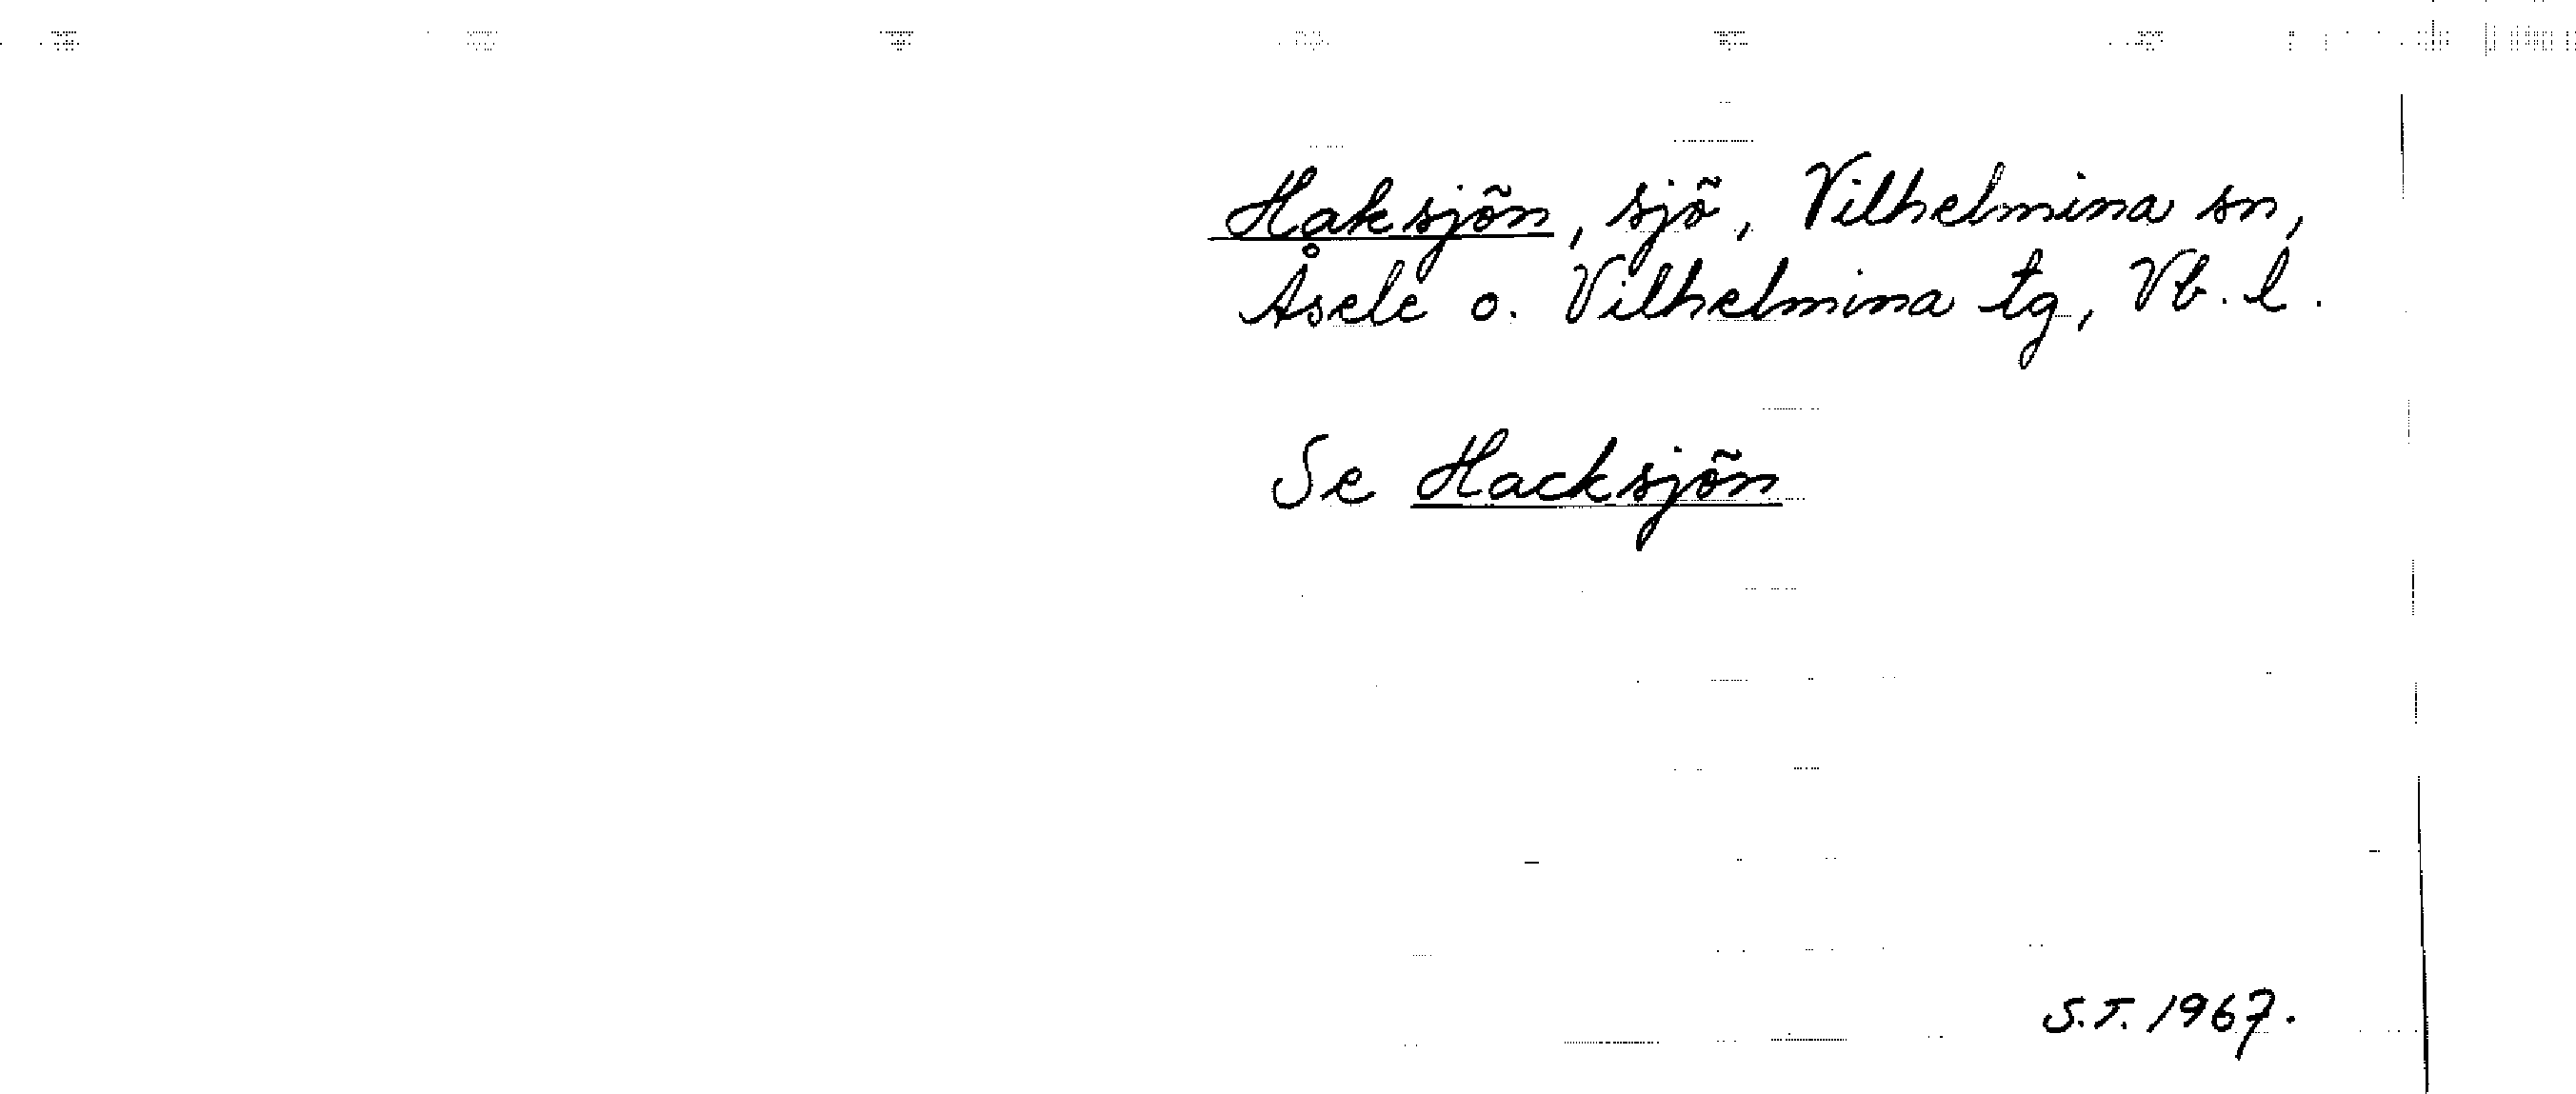 Haksjön, sjö, Vilhelmina sn,
Åsele o. Vilhelmina tg, Vb. l.
Se Hacksjön
S.T. 1967.